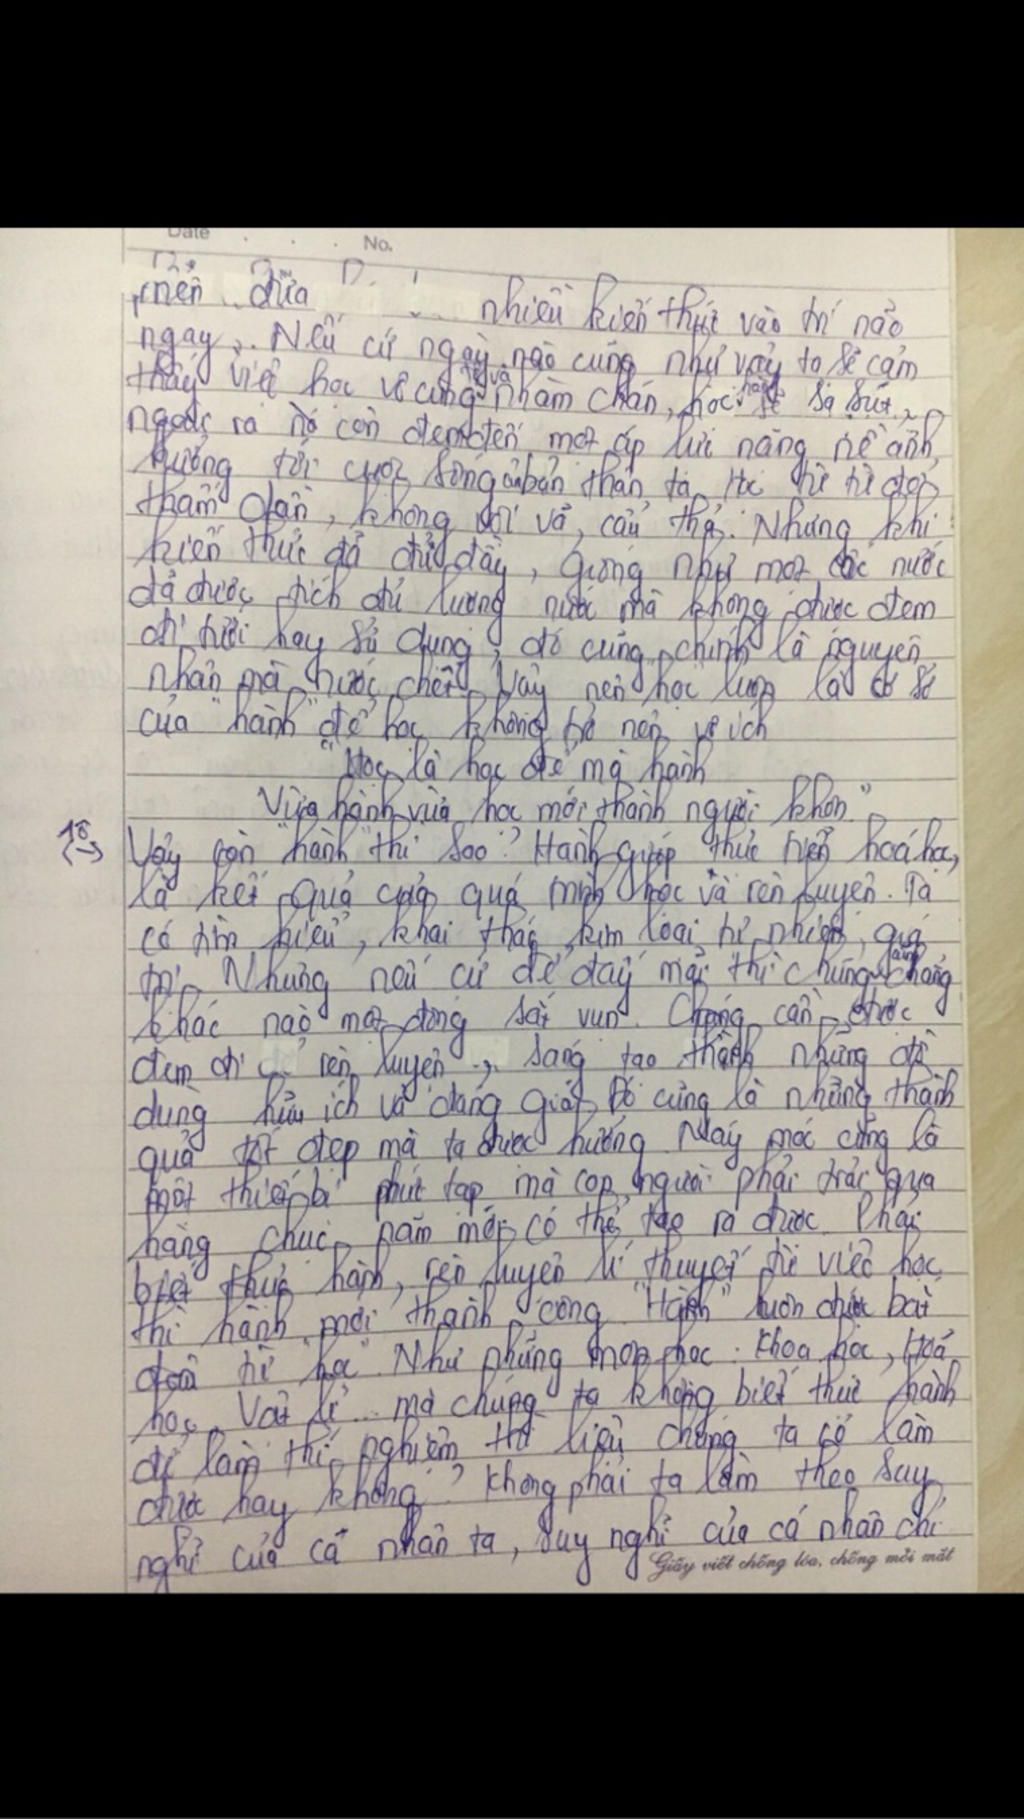 Date . . . No.
nên đưa nhiều kiến thức vào trí não
ngay, . Nếu cứ ngày nào cũng như vậy ta sẽ cảm
thấy việc học vô cùng nhàm chán, học sẽ sa sút,
ngoài ra nó còn đem đến một áp lực nặng nề ảnh
hưởng tới cuộc sống của bản thân ta. Học từ từ
thấm dần, không vội vả, cẩu thả. Nhưng khi
kiến thức đã đầy, Giống như một cốc nước
đã được tích đủ lượng nước mà không được đem
đi tưới hay sử dụng, đó cũng chính là nguyên
nhân mà nước chết. Vậy nên học luôn là cơ sở
của "hành" để học không trở nên vô ích
"Học là học để mà hành
Vừa hành vừa học mới thành người khôn."
Vậy còn "hành" thì sao? Hành giúp thực tiễn hoá học,
là kết quả của quá trình học và rèn luyện. Ta
có tìm kiếm, khai thác kim loại tự nhiên, giá
trị. Nhưng nếu cứ để đấy mãi thì chúng cũng chẳng
khác nào một đống sắt vụn. Chúng cần được
đem đi rèn luyện, sáng tạo thành những đồ
dùng hữu ích và đáng giá. Đó cũng là những thành
quả tốt đẹp mà ta được hưởng. Máy móc cũng là
một thiết bị phức tạp mà con người phải trải qua
hàng chục năm mới có thể tạo ra được. Phải
biết thực hành, rèn luyện lí thuyết từ việc học
thì hành mới thành công. "Hành" luôn được bắt
đầu từ "học". Như những môn học: Khoa học, Hoá
học, Vật lí... mà chúng ta không biết thực hành
để làm thí nghiệm thì liệu chúng ta có làm
được hay không? Không phải ta làm theo suy
nghĩ của cá nhân ta, suy nghĩ của cá nhân chỉ
Giấy viết chống lóa, chống mỏi mắt